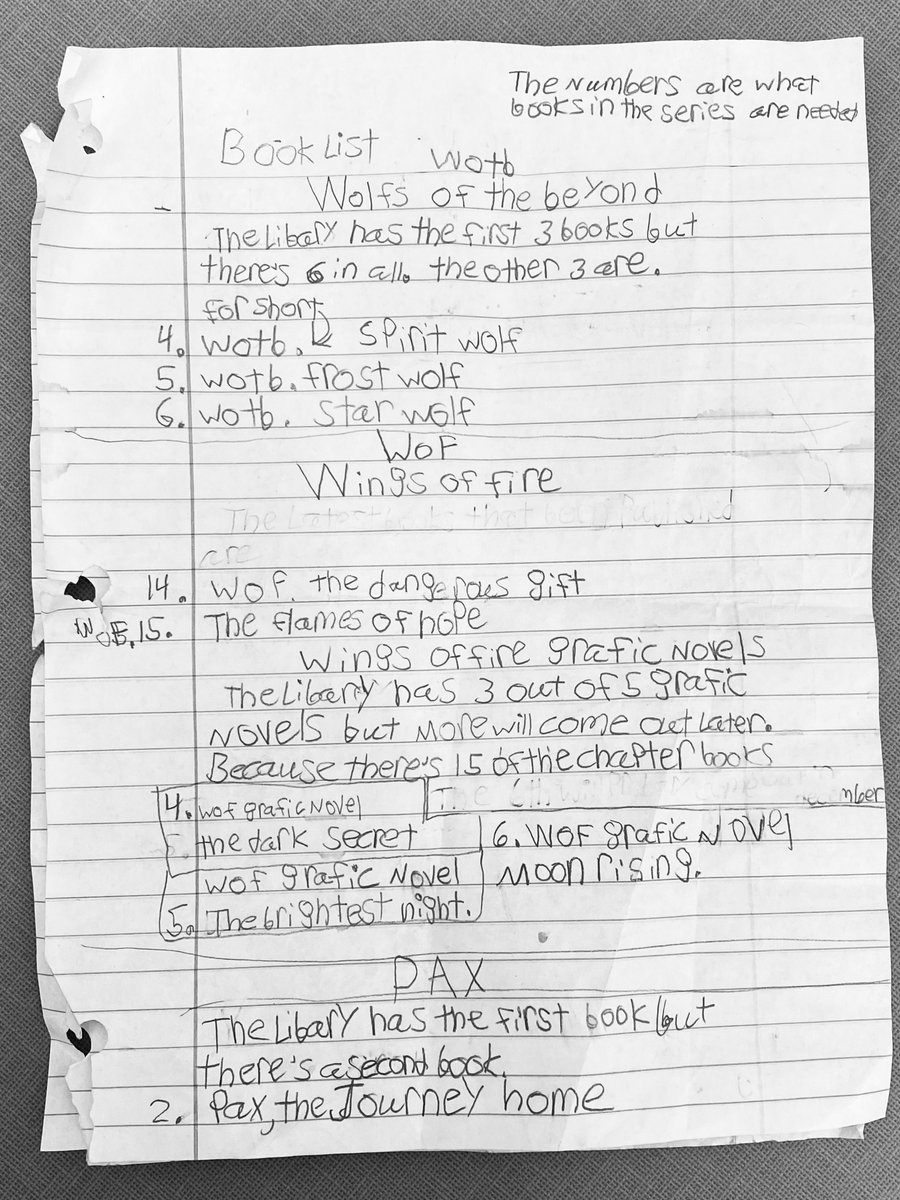 The Numbers are what
books in the series are needed
Book List
wotb
Wolfs of the beyond
The Libary has the first 3 books but
there's 6 in all. the other 3 are.
for short
4. wotb. spirit wolf
5. wotb. frost wolf
6. wotb. star wolf
WoF
Wings of fire
The Latest books that been Published
are
14. WOF. the dangerous gift
WOF. 15. The flames of hope
Wings of fire grafic Novels
The Libarry has 3 out of 5 grafic
Novels but More will come out Later.
Because there's 15 of the chapter books
4. wof grafic Novel
the dark secret
wof grafic Novel
5. The brightest night.
The in
6. WOF grafic Novel
Moon rising.
PAX
The Libary has the first book but
there's a second book.
2. Pax, the Journey home